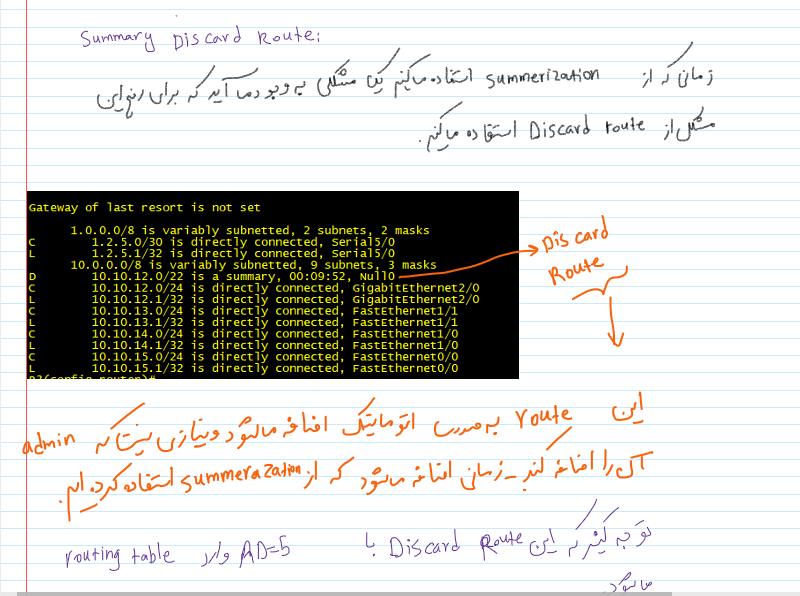 Summary Discard Route:
زمانی که از summerization استفاده میکنیم یک مشکلی به وجود می آید که برای رفع این
مشکل از Discard route استفاده میکنیم.
Gateway of last resort is not set
1.0.0.0/8 is variably subnetted, 2 subnets, 2 masks
C 1.2.5.0/30 is directly connected, Serial5/0
L 1.2.5.1/32 is directly connected, Serial5/0
10.0.0.0/8 is variably subnetted, 9 subnets, 3 masks
D 10.10.12.0/22 is a summary, 00:09:52, Null0
C 10.10.12.0/24 is directly connected, GigabitEthernet2/0
L 10.10.12.1/32 is directly connected, GigabitEthernet2/0
C 10.10.13.0/24 is directly connected, FastEthernet1/1
L 10.10.13.1/32 is directly connected, FastEthernet1/1
C 10.10.14.0/24 is directly connected, FastEthernet1/0
L 10.10.14.1/32 is directly connected, FastEthernet1/0
C 10.10.15.0/24 is directly connected, FastEthernet0/0
L 10.10.15.1/32 is directly connected, FastEthernet0/0
Discard
Route
این route به صورت اتوماتیک اضافه میشود و نیازی نیست که admin
آن را اضافه کند - زمانی اضافه میشود که از summerazation استفاده کرده ایم.
توجه کنید که این Discard Route با AD=5 وارد routing table
میشود.